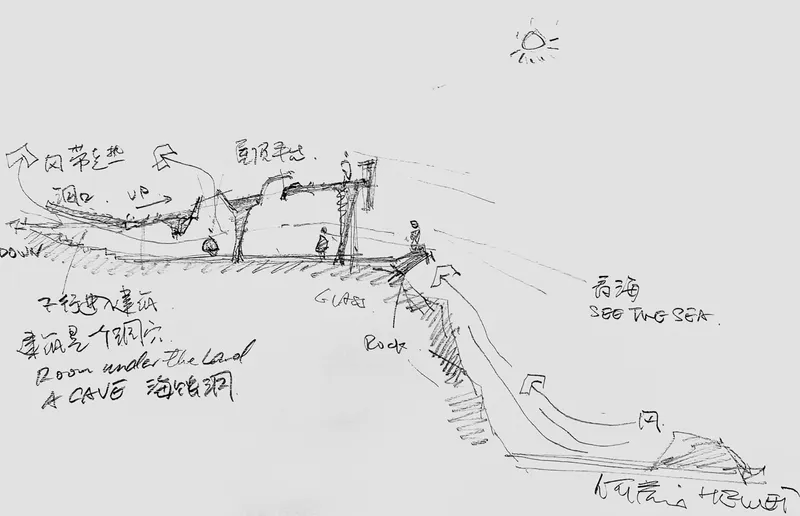 风带走热
屋顶平台
洞口 UP
DOWN
GLASS
看海
SEE THE SEA.
ROCK
下行进入建筑
建筑是个洞穴
Room under the Land
A CAVE 海蚀洞
风
HEWEI